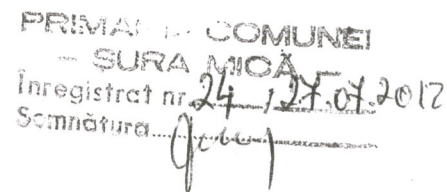 PRIMA COMUNEI
ȘURA MICĂ
Înregistrat nr. 24 / 27.07.2017
Semnătura